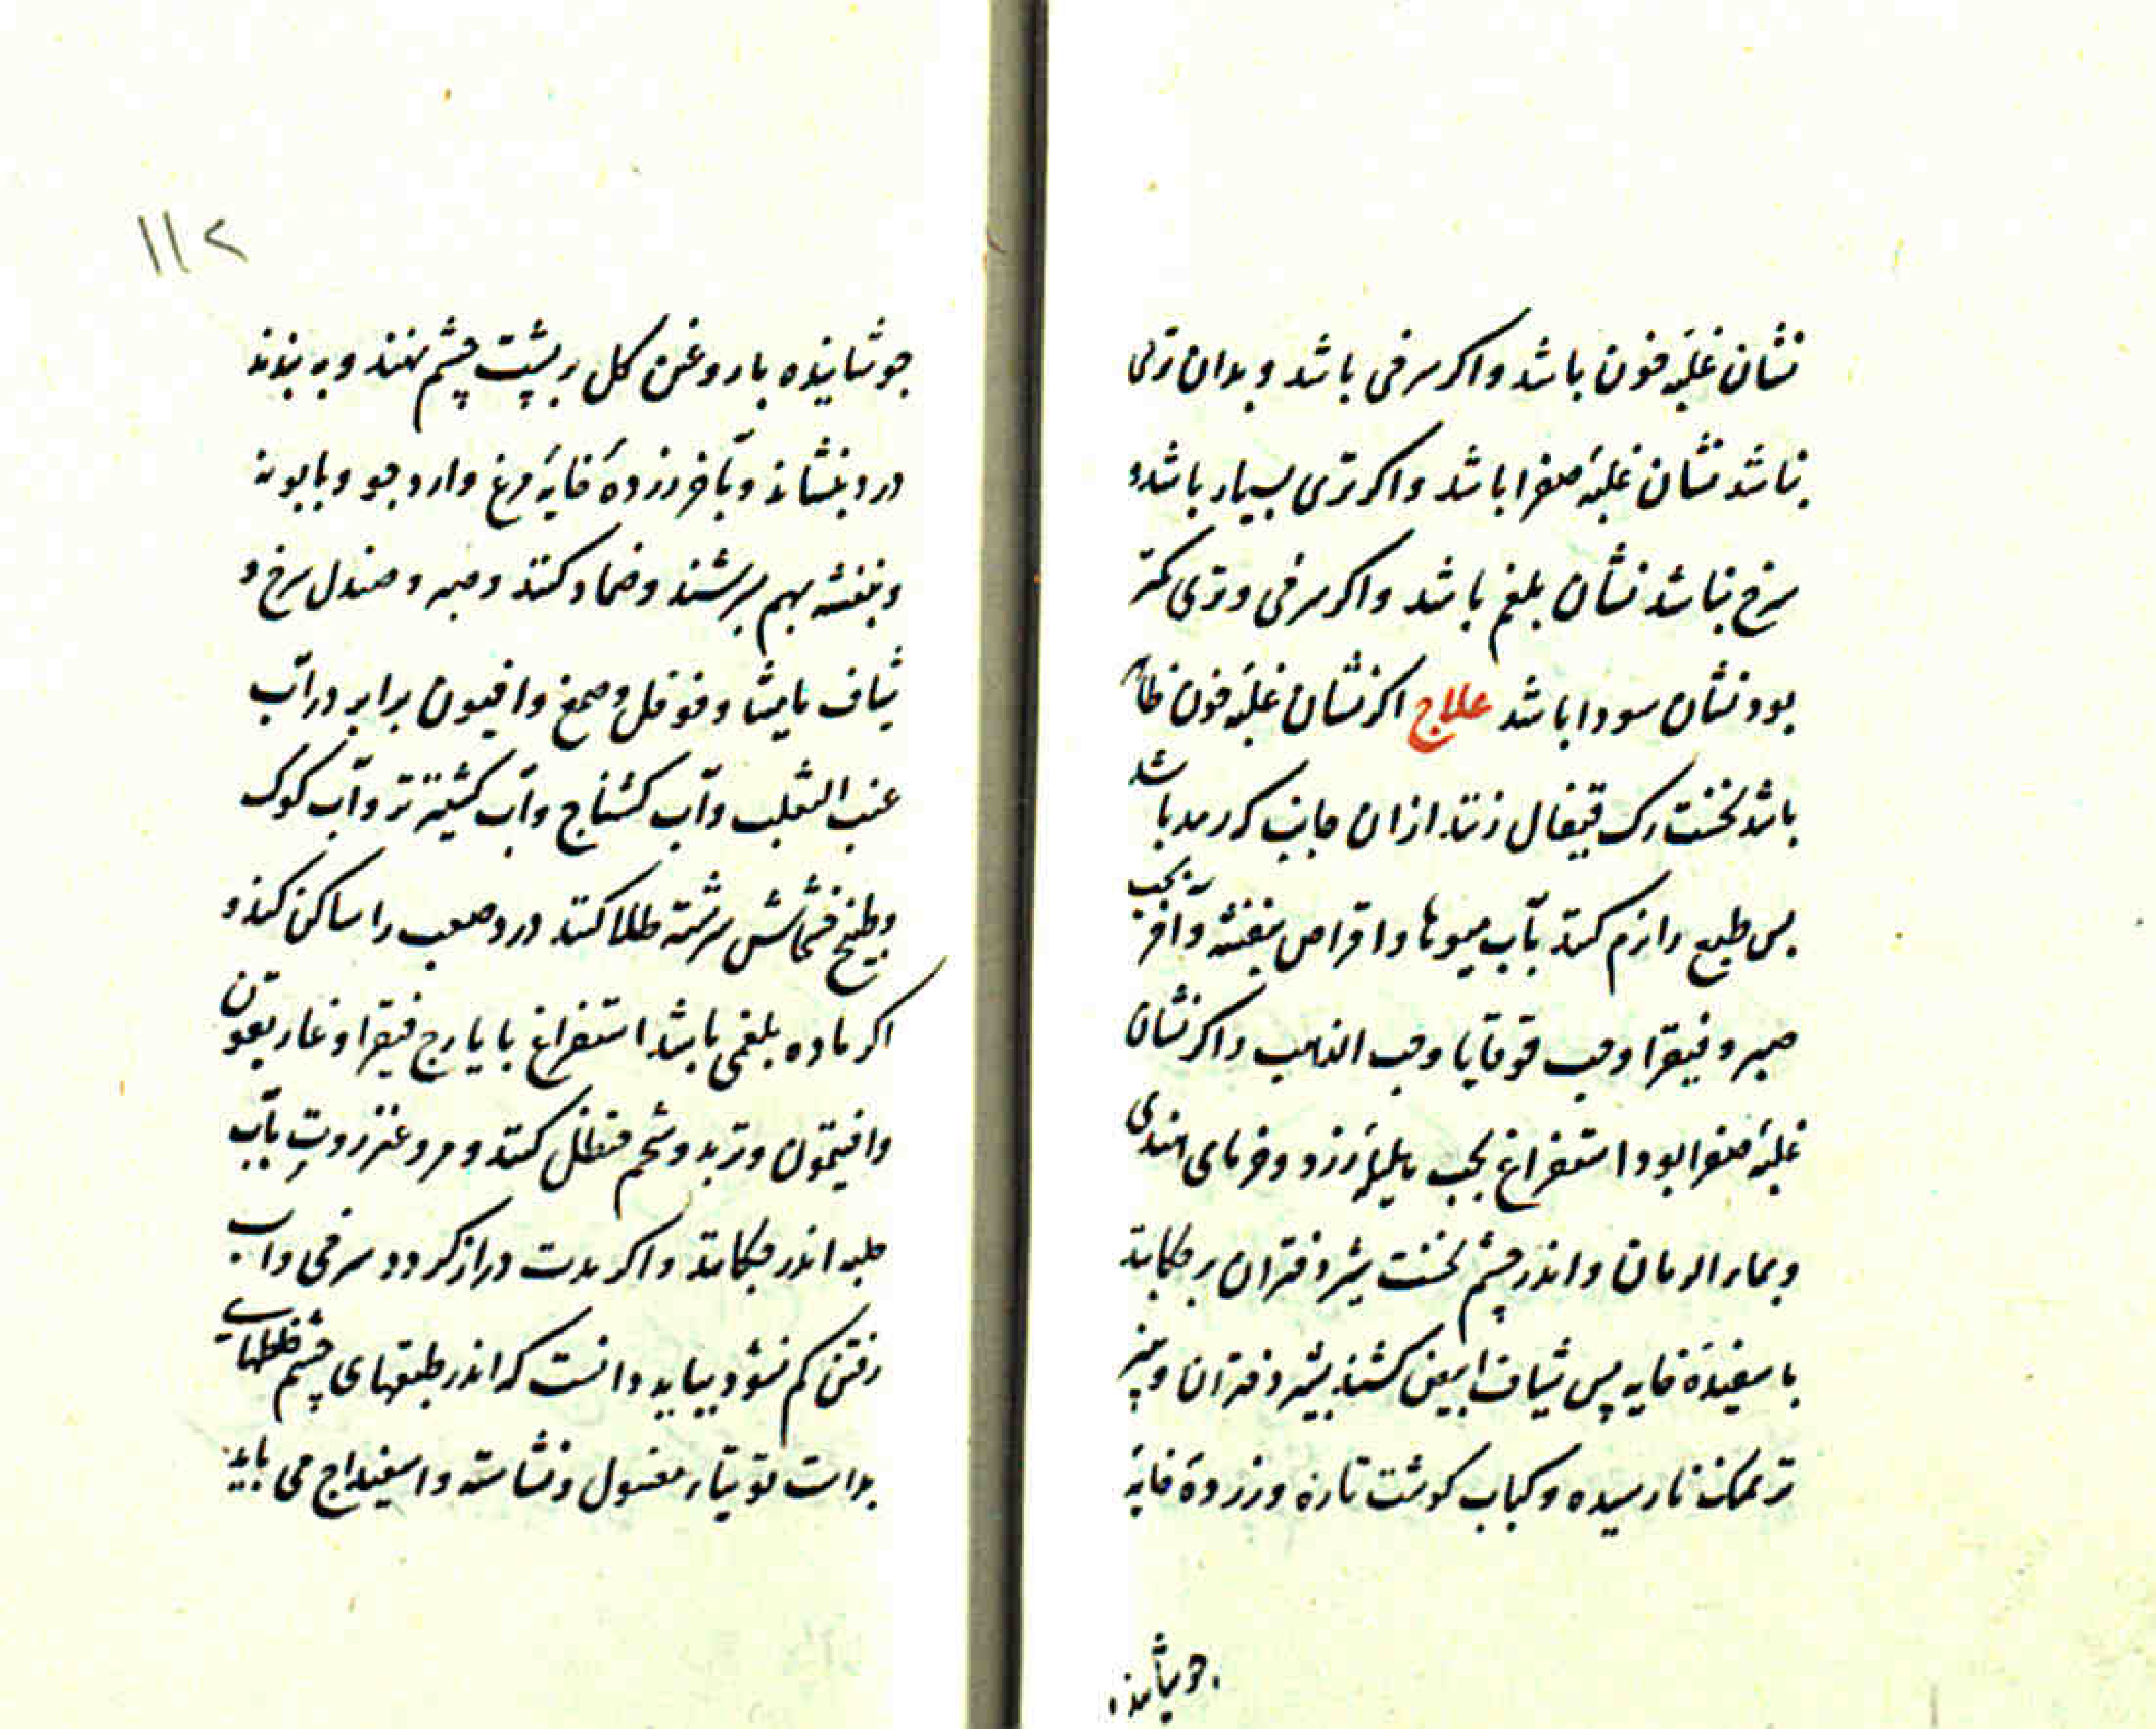 نشان غلبهٔ خون باشد و اکر سرخی باشد و بدان تری
نباشد نشان غلبهٔ صفرا باشد و اکر تری بسیار باشد و
سرخ نباشد نشان بلغم باشد و اکر سرخی و تری کمتر
بود نشان سودا باشد علاج اکر نشان غلبهٔ خون ظاهر
باشد نخست رک قیفال زنند از ان جانب که رمد باشد
پس طبع را نرم کنند بآب میوها و اقراص بنفشه و آخر بحب
صبر و فیقرا و حب قوقایا و حب الذهب و اکر نشان
غلبهٔ صفرا بود استفراغ بحب هلیلهٔ زرد و خرمای هندی
و بماء الرمان و اندر چشم نخست شیر دختران بر چکانند
با سفیدهٔ خایه پس شیاف ابیض کشند بشیر دختران و پنیر
تر نمک نارسیده و کباب کوشت تازه و زردهٔ خایه
جوشانیده
۱۱۲
جوشانیده با روغن کل بر پشت چشم نهند و به بندند
درد بنشاند و بآخر زردهٔ خایهٔ مرغ و ارد جو و بابونه
و بنفشه بهم بسرشند و ضماد کنند و صبر و صندل سرخ و
شیاف مامیثا و فوفل و صمغ و افیون برابر در آب
عنب الثعلب و آب کشناج و آب کشنیز تر و آب کوک
و طبیخ خشخاش سرشته طلا کنند درد صعب را ساکن کند و
اکر ماده بلغمی باشد استفراغ با یارج فیقرا و غاریقون
و افیتمون و تربد و شحم حنظل کنند و مر و عنزروت بآب
حلبه اندر چکانند و اکر مدت دراز کردد سرخی و اب
رفتن کم نشود بباید دانست که اندر طبقهای چشم خلطهای
بد است توتیاء مغسول و نشاسته و اسفیداج می باید